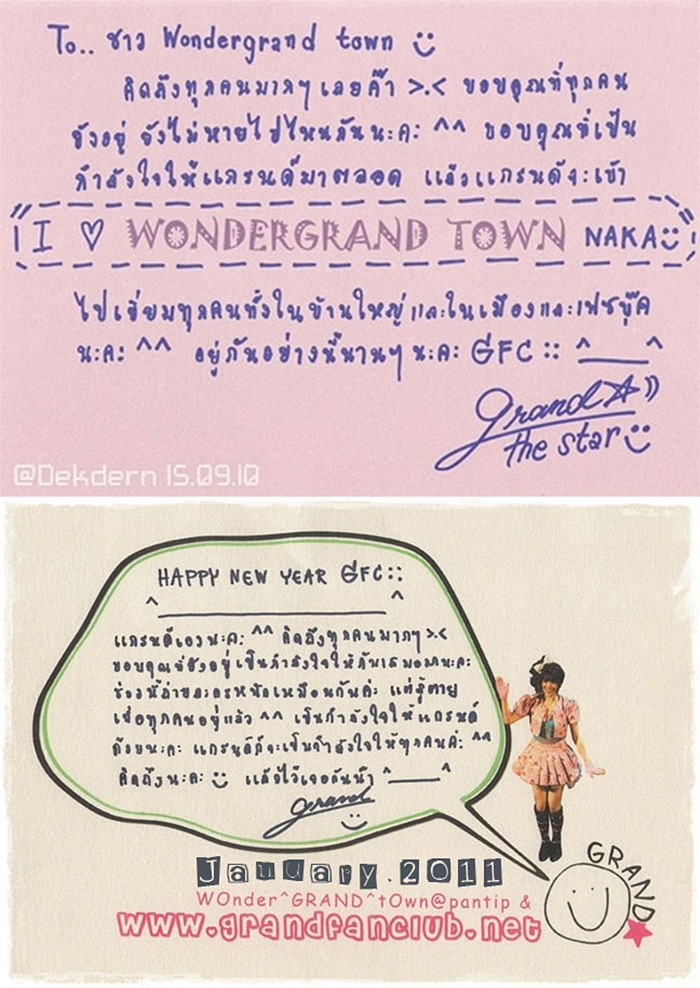 To.. ชาว Wondergrand town
คิดถึงทุกคนมากๆ เลยค๊า >.< ขอบคุณที่ทุกคน
ยังอยู่ ยังไม่หายไปไหนกันนะคะ ^^ ขอบคุณที่เป็น
กำลังใจให้แกรนด์มาตลอด แล้วแกรนด์จะเข้า
I ♡ WONDERGRAND TOWN NAKA
ไปเยี่ยมทุกคนทั้งในบ้านใหญ่และในเมืองและเฟซบุ๊ค
นะคะ ^^ อยู่กันอย่างนี้นานๆ นะคะ GFC :: ^____^
grand☆))
the star
@Dekdern 15.09.10
HAPPY NEW YEAR GFC::
^____________________^
แกรนด์เองนะคะ ^^ คิดถึงทุกคนมากๆ >.<
ขอบคุณที่ยังอยู่เป็นกำลังใจให้กันเสมอมานะคะ
ช่วงนี้ถ่ายละครหนักเหมือนกันค่ะ แต่สู้ตาย
เพื่อทุกคนอยู่แล้ว ^^ เป็นกำลังใจให้แกรนด์
ด้วยนะคะ แกรนด์ก็จะเป็นกำลังใจให้ทุกคนค่ะ ^^
คิดถึงนะคะ แล้วไว้เจอกันน้า ^____^
grand
GRAND
January.2011
WOnder^GRAND^tOwn@pantip &
www.grandfanclub.net